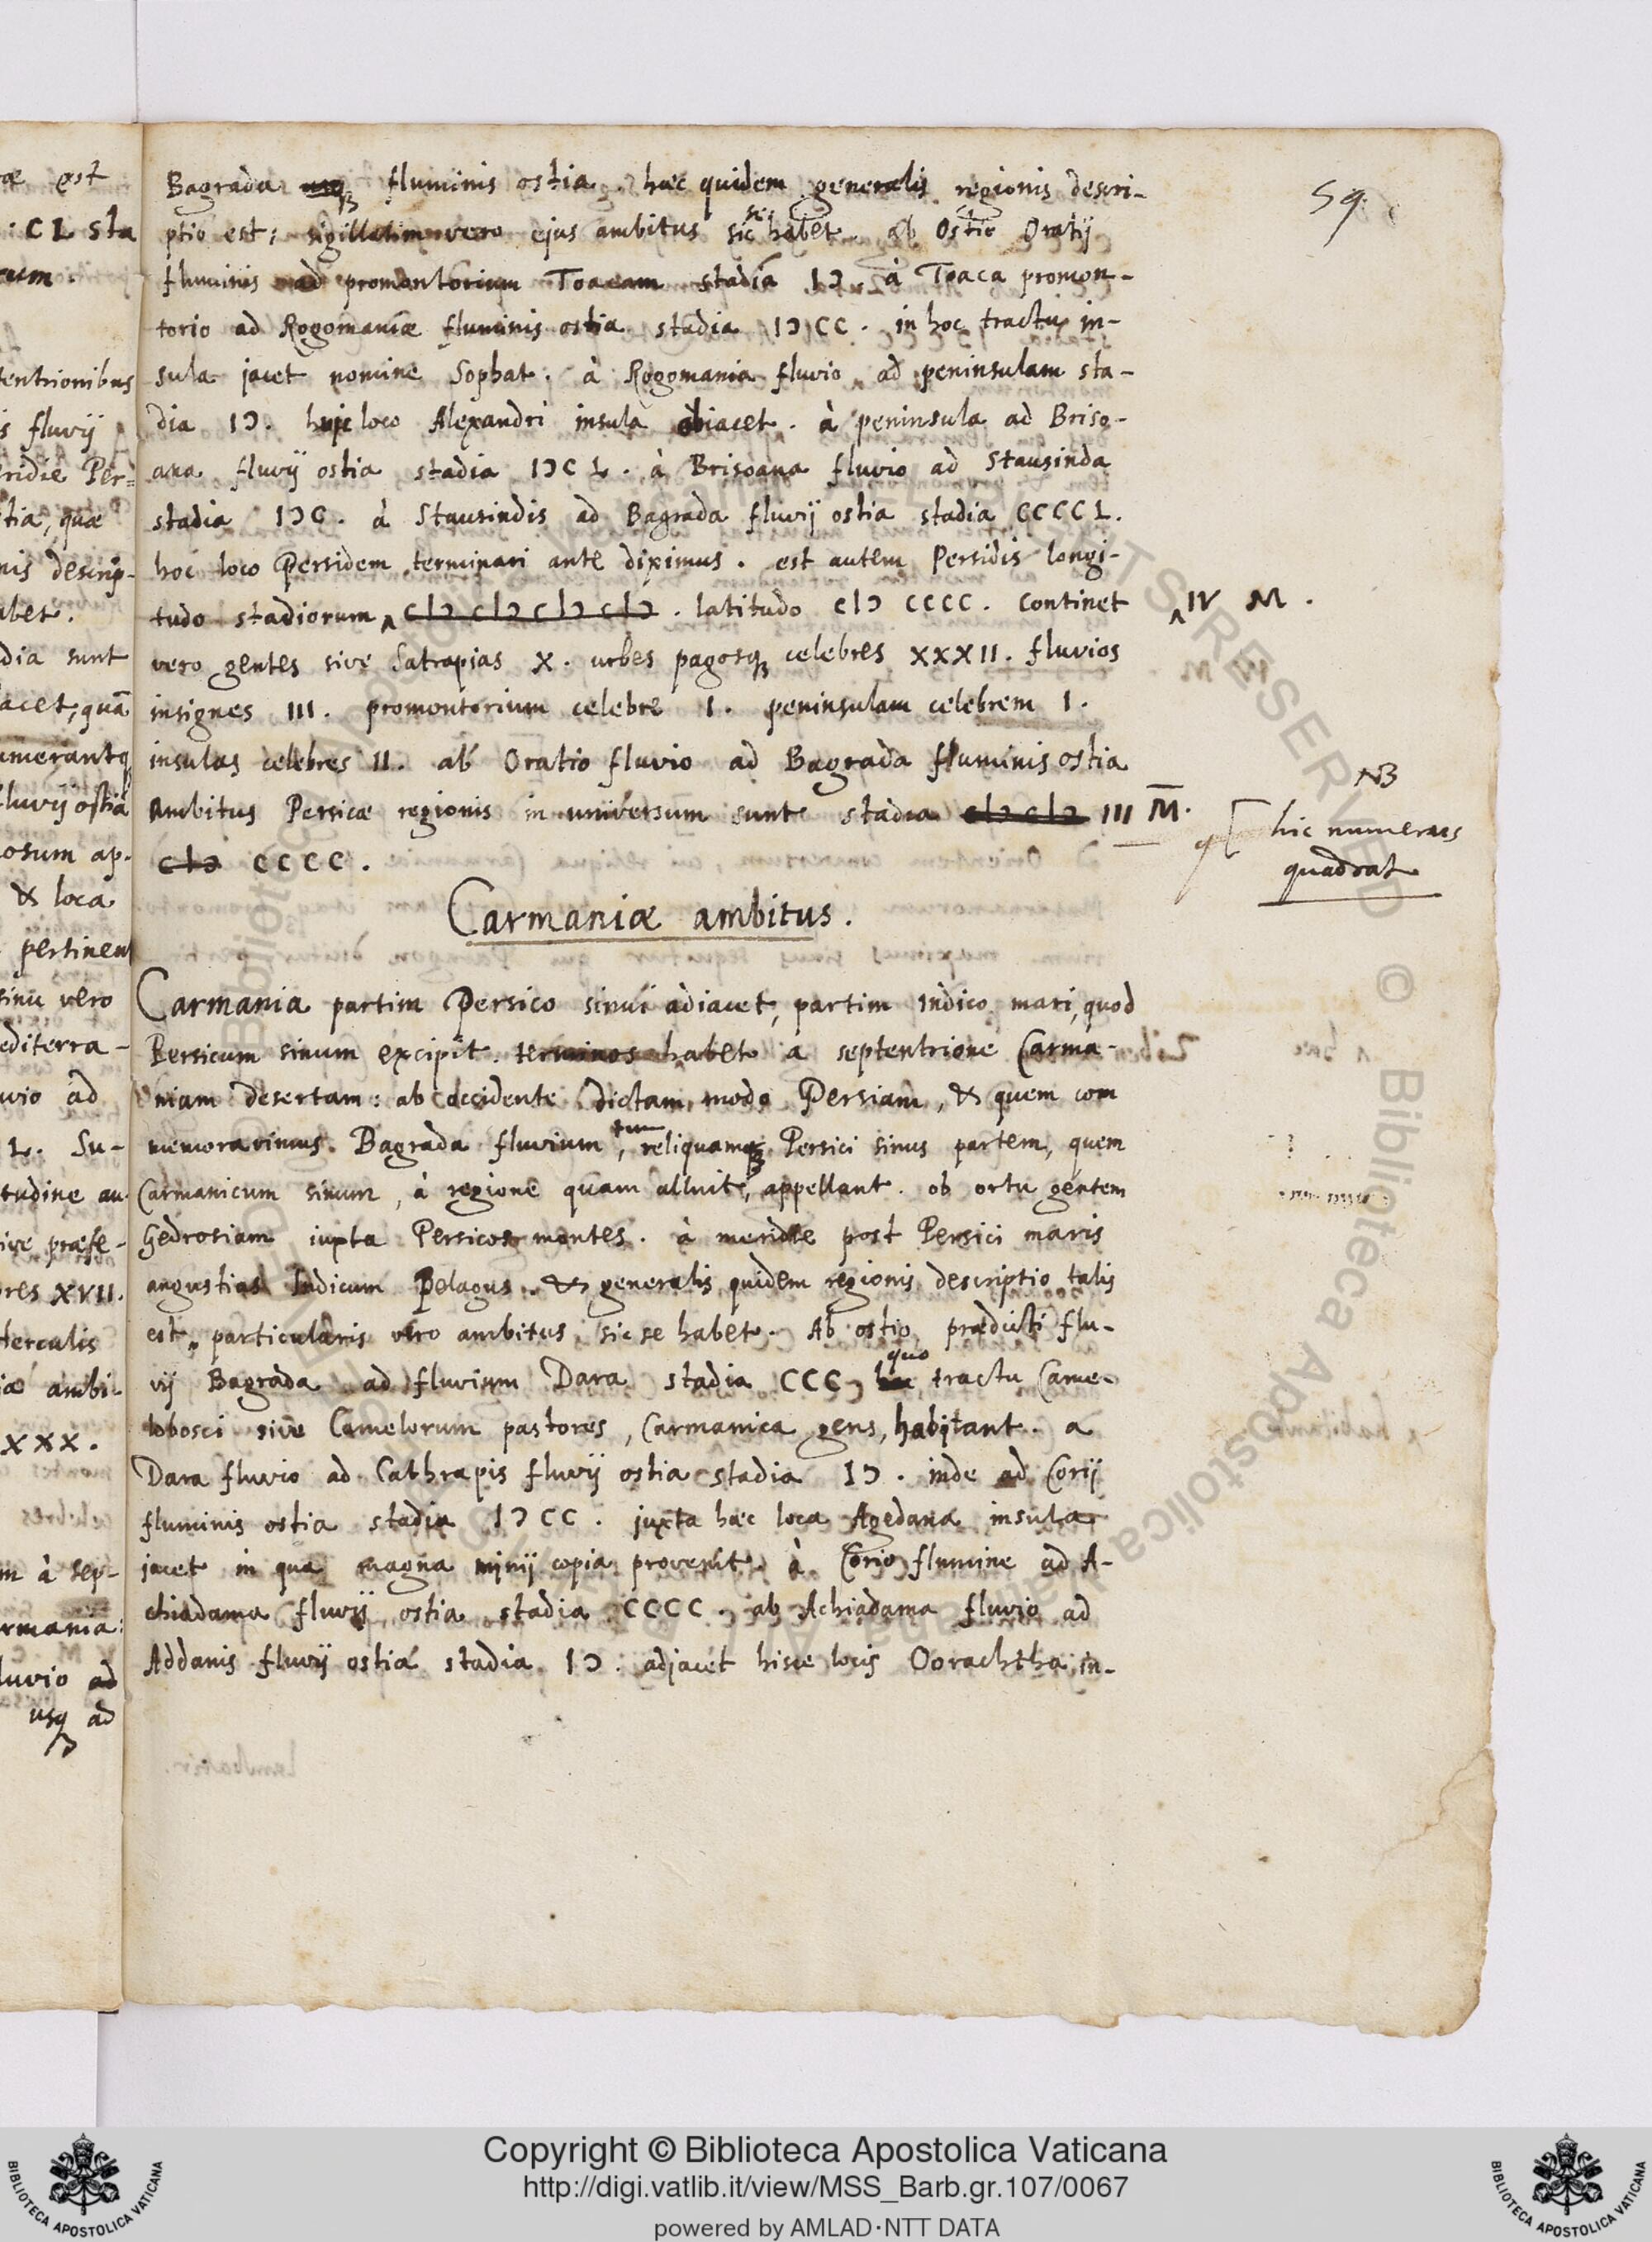 59.
Bagrada usq fluminis ostia. hæc quidem generalis regionis descri-
ptio est; sigillatim vero ejus ambitus sic se habet. ab Ostio Oratij
fluminis ad promontorium Toacam stadia IↃ. à Toaca promon-
torio ad Rogomaniæ fluminis ostia stadia IↃ CC. in hoc tractu in-
sula jacet nomine Sophat. à Rogomania fluvio ad peninsulam sta-
dia IↃ. huic loco Alexandri insula obiacet. à peninsula ad Briso-
ana fluvij ostia stadia IↃC L. à Brisoana fluvio ad Stausinda
stadia IↃC. à Stausindis ad Bagrada fluvij ostia stadia CCCC L.
hoc loco Persidem terminari ante diximus. est autem Persidis longi-
tudo stadiorum ‸ cIↃ cIↃ cIↃ cIↃ. latitudo cIↃ CCCC. Continet
‸ IV M.
vero gentes sive Satrapias X. urbes pagosq celebres XXXII. fluvios
insignes III. promontorium celebre I. peninsulam celebrem I.
insulas celebres II. ab Oratio fluvio ad Bagrada fluminis ostia
Ambitus Persicæ regionis in universum sunt stadia cIↃ cIↃ III M̅.
cIↃ CCCC.
NB
hic numerus
quadrat
Carmaniæ ambitus.
Carmania partim Persico sinui adiacet, partim Indico mari, quod
Persicum sinum excipit. terminos habet a septentrione Carma-
niam desertam: ab occidente dictam modo Persiam, & quem com
memoravimus Bagrada fluvium, tum reliquamq Persici sinus partem, quem
Carmanicum sinum, à regione quam alluit, appellant. ob ortu gentem
Gedrosiam iuxta Persicos montes. à meridie post Persici maris
angustias Indicum Pelagus. & generalis quidem regionis descriptio talis
est, particularis vero ambitus sic se habet. Ab ostio prædicti flu-
vij Bagrada ad fluvium Dara stadia CCC, hoc quo tractu Came-
lobosci sive Camelorum pastores, Carmanica gens, habitant. a
Dara fluvio ad Cathrapis fluvij ostia stadia IↃ. inde ad Corij
fluminis ostia stadia IↃ CC. juxta hæc loca Agedana insula
jacet in qua magna minij copia provenit. à Corio flumine ad A-
chiadama fluvij ostia stadia CCCC. ab Achiadama fluvio ad
Addanis fluvij ostia stadia IↃ. adjacet hisce locis Oorachtha in-
Copyright © Biblioteca Apostolica Vaticana
http://digi.vatlib.it/view/MSS_Barb.gr.107/0067
powered by AMLAD·NTT DATA